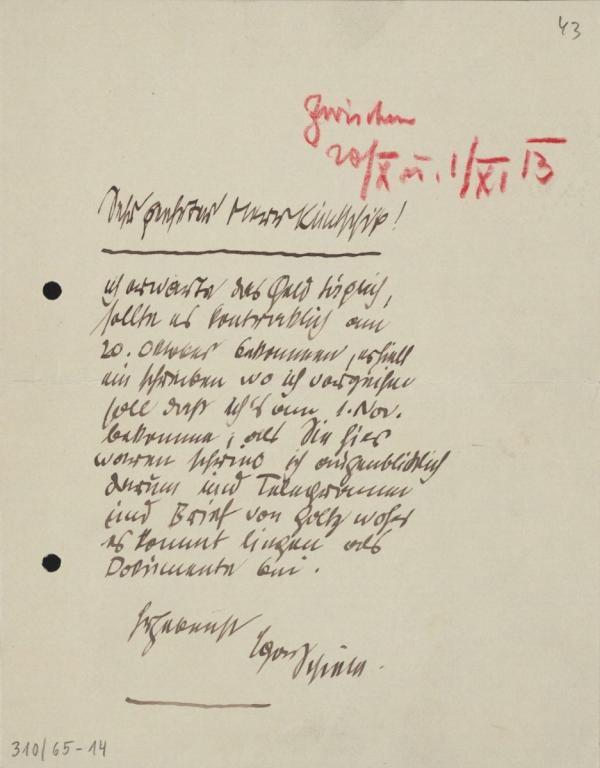 43
Zwischen
20/X u. 1/XI 13
Sehr geehrter Herr
ich erwarte das Geld täglich,
sollte es kontraktlich am
20. Oktober bekommen, erhielt
ein schreiben wo ich verzeihen
soll daß ich's am 1. Nov.
bekomme; als Sie hier
waren schrieb ich augenblicklich
darum und Telegramm
und Brief von Goltz woher
es kommt liegen als
Dokumente bei.
Ergebenst
Egon Schiele.
310/65-14